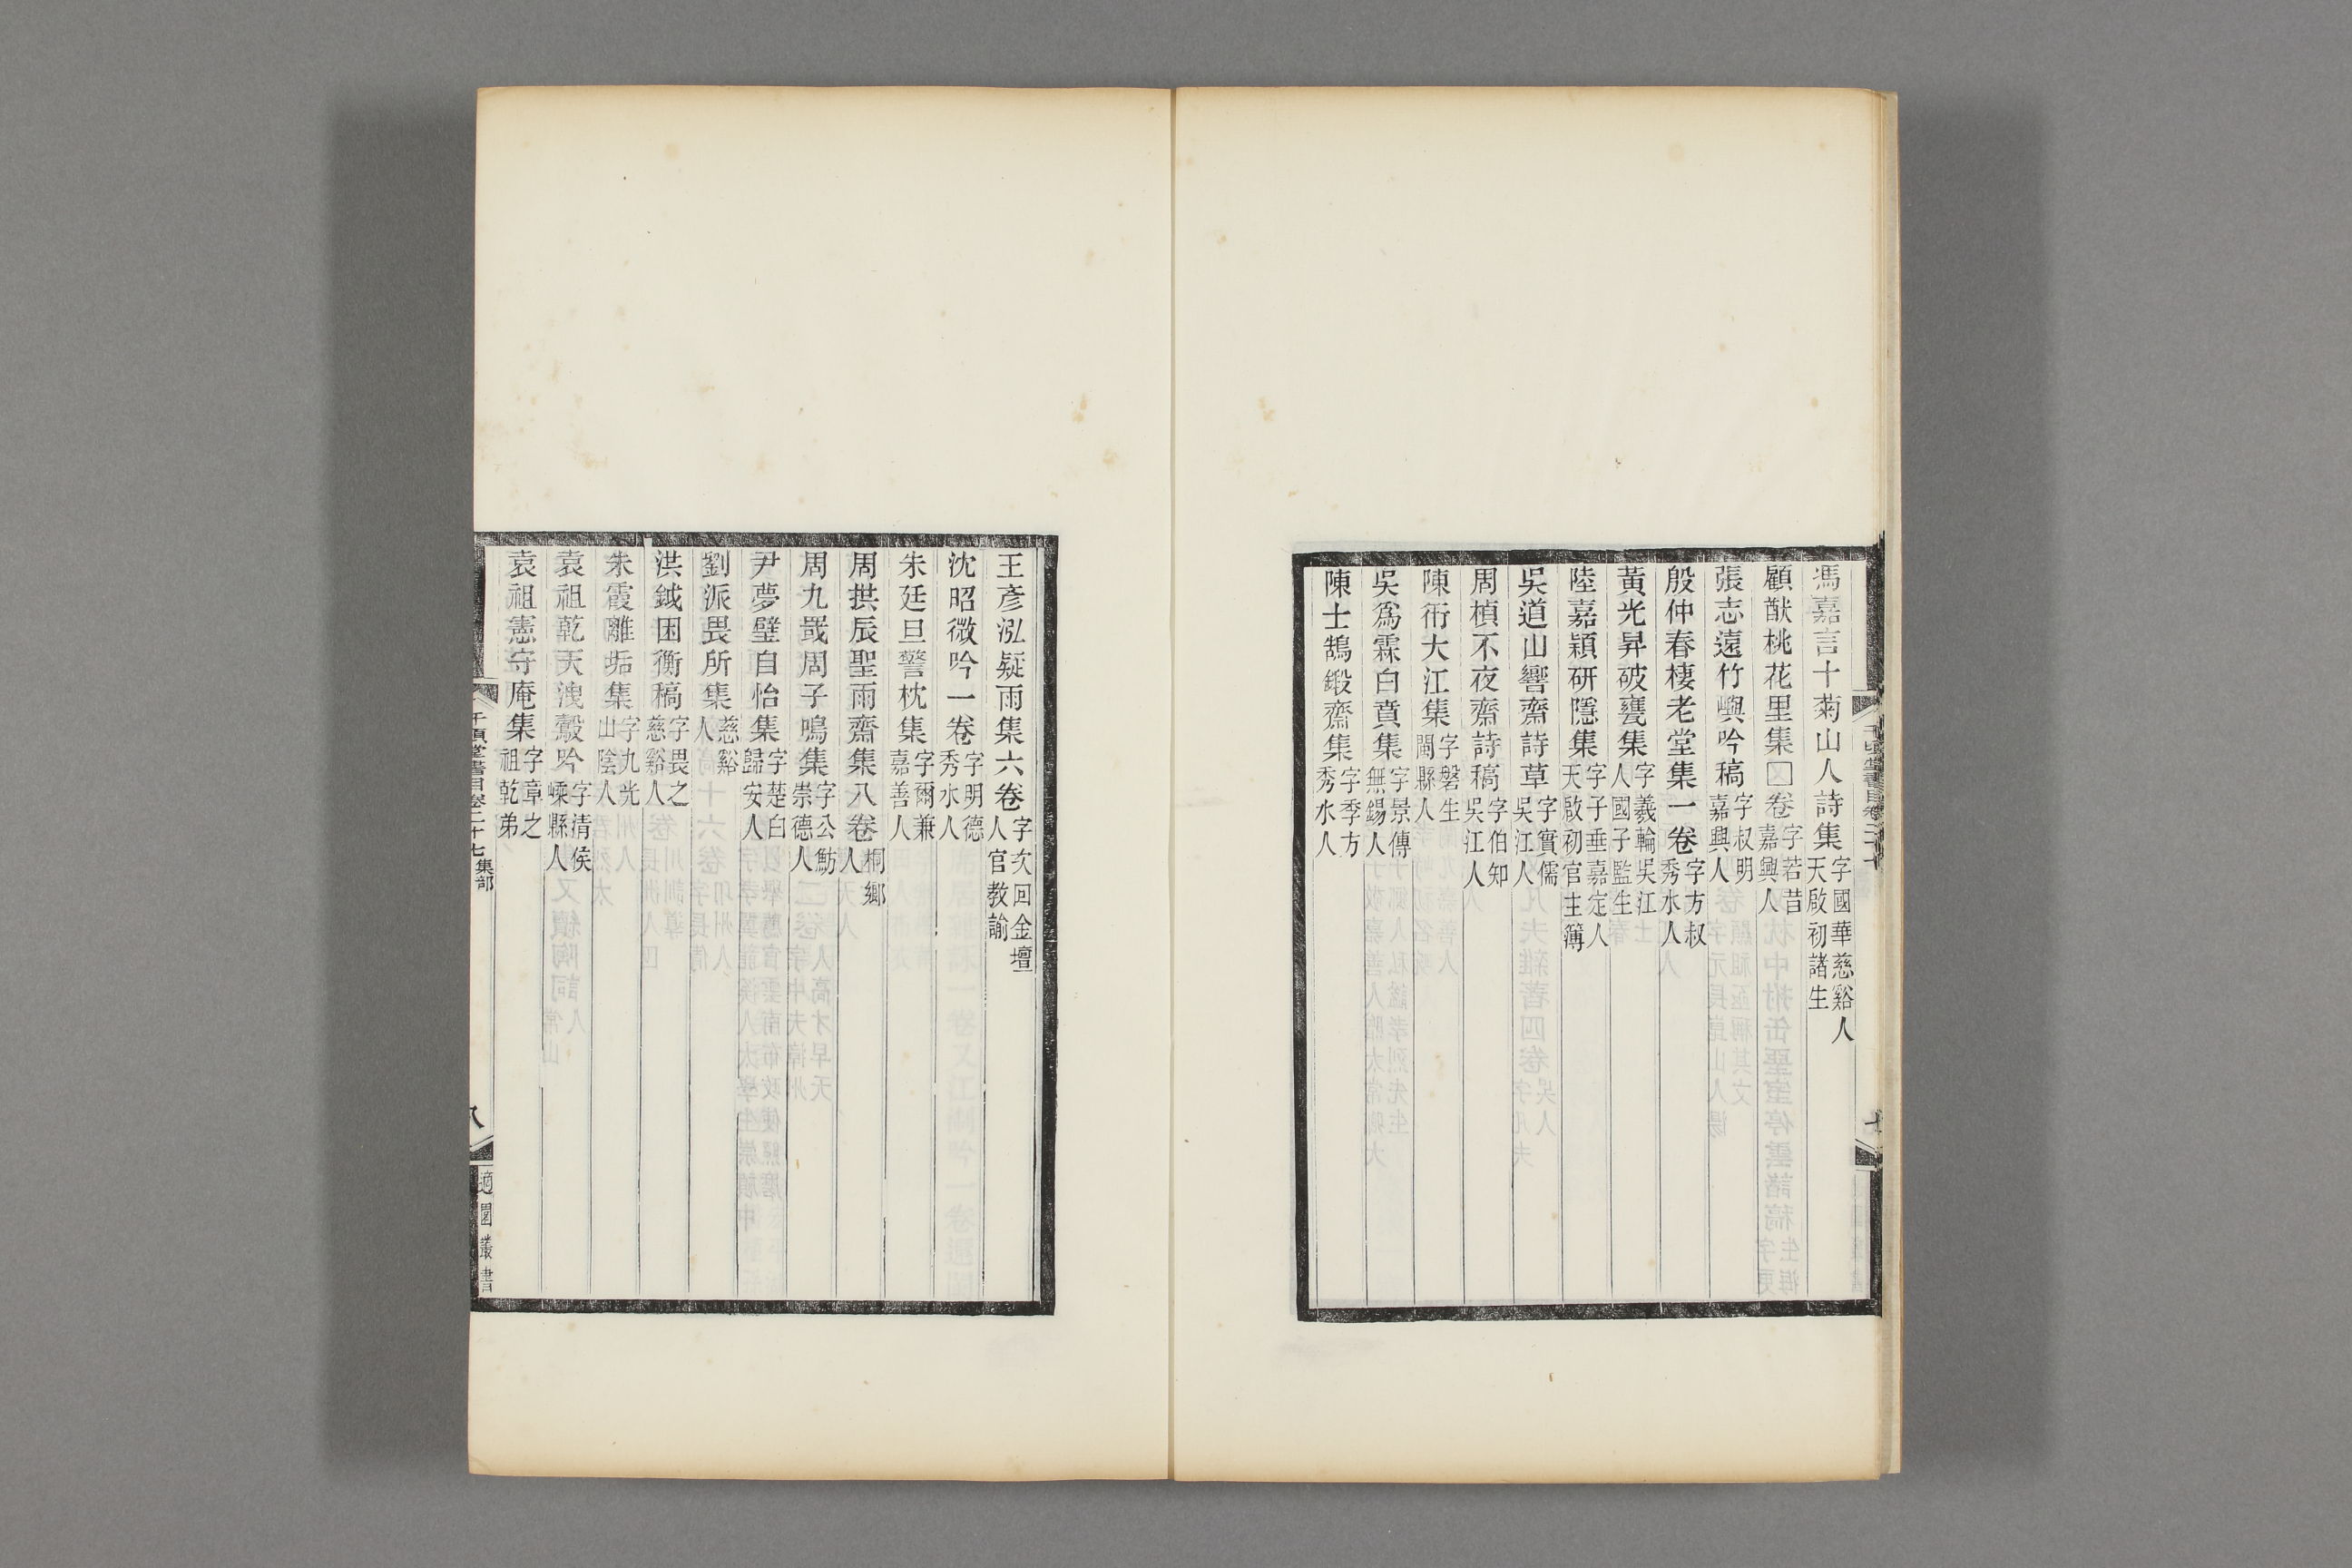 馮嘉言十菊山人詩集字國華慈谿人天啟初諸生
顧猷桃花里集囗卷字若昔嘉興人
張志遠竹嶼吟稿字叔明嘉興人
殷仲春棲老堂集一卷字方叔秀水人
黃光昇破甕集字羲輪吳江人國子監生
陸嘉穎研隱集字子垂嘉定人天啟初官主簿
吳道山響齋詩草字實儒吳江人
周楨不夜齋詩稿字伯知吳江人
陳衎大江集字磐生閩縣人
吳爲霖白賁集字景傳無錫人
陳士鵠鍛齋集字季方秀水人
王彥泓疑雨集六卷字次回金壇人官教諭
沈昭微吟一卷字明德秀水人
朱廷旦警枕集字爾兼嘉善人
周拱辰聖雨齋集八卷桐鄉人
周九罭周子鳴集字公魴崇德人
尹夢璧自怡集字楚白歸安人
劉派畏所集慈谿人
洪鉞困衡稿字畏之慈谿人
朱霞離垢集字九光山陰人
袁祖乾天洩鷇吟字清侯嵊縣人
袁祖憲守庵集字章之祖乾弟
千頃堂書目卷二十七 集部
八
適園叢書